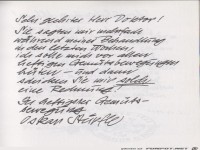 Sehr geehrter Herr Doktor!
Sie sagten mir mehrfach
während meiner Behandlung
in den letzten Wochen,
ich solle mich vor allen
heftigen Gemütsbewegungen
hüten – und dann
schicken Sie mir solche
eine Rechnung
Ihr heftigster Gemüts-
bewegung
Oskar